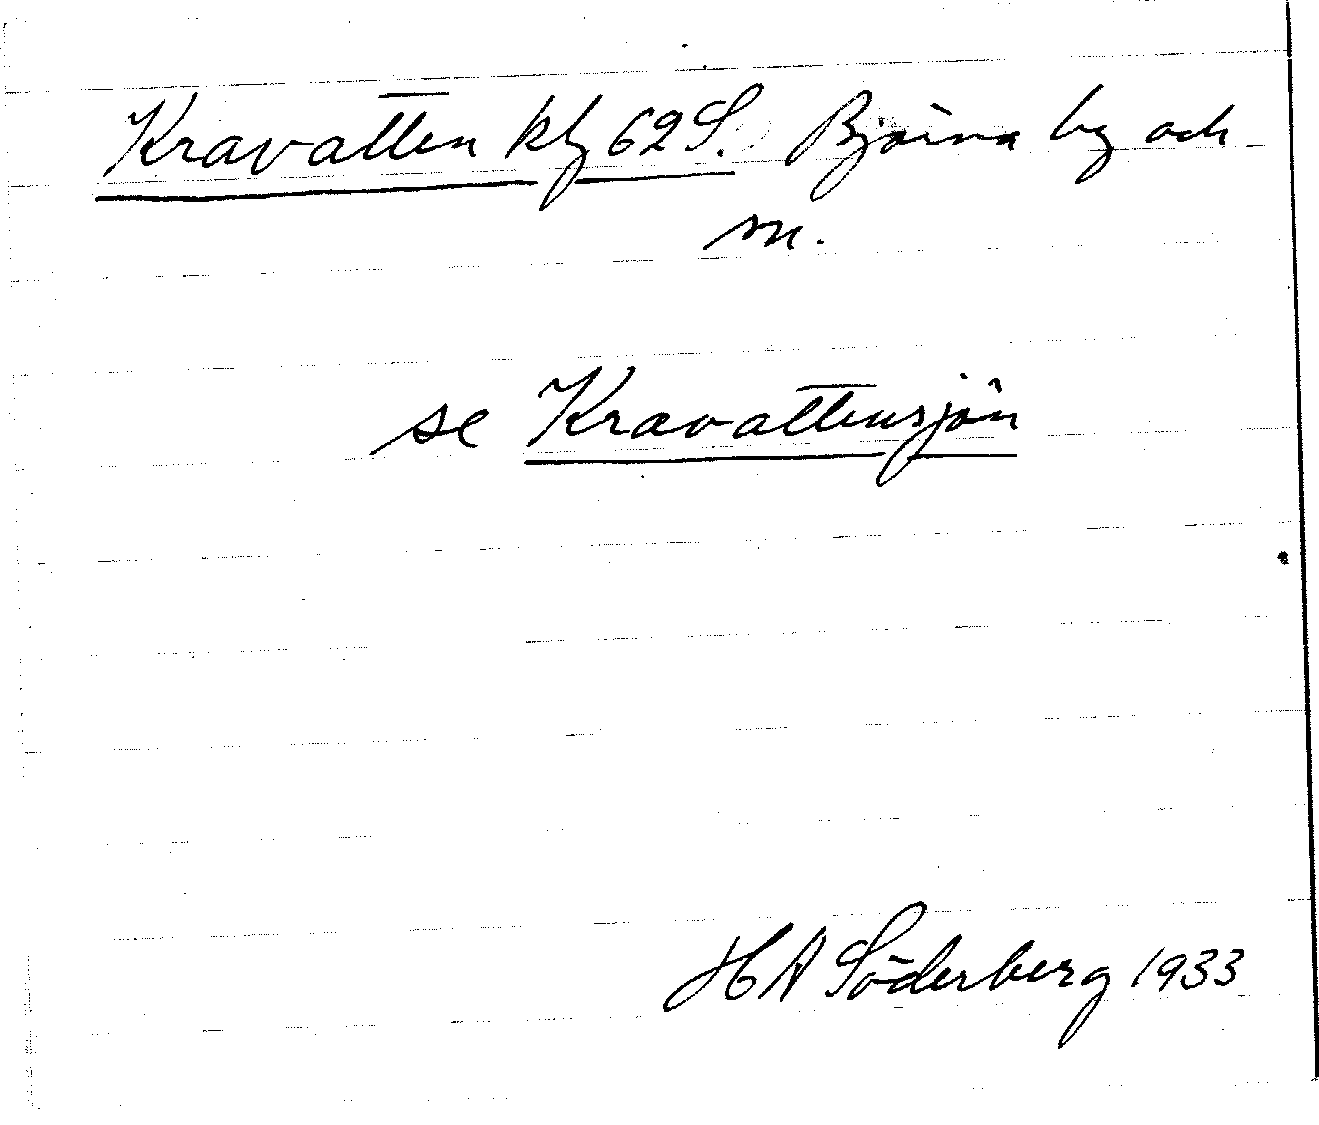 Kravatten kbl 62 S. Björna by och
sn.
se Kravattensjön
H A Söderberg 1933